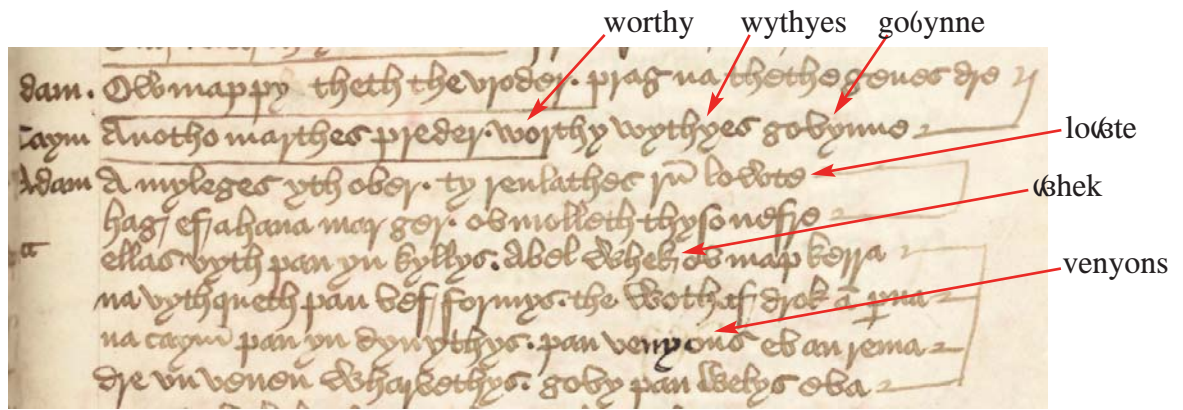 worthy wythyes goỽynne
dam. Ow map py theth the vroder. prag na theth e genes dre
Caym Anotho marthes preder. worthy wythyes goỽynne
loꝡte
Adam A myleges yth ober. ty renlathes rū loꝡte
ꝡhek
hag ef ahana mar ger. oỽ molleth thyso nefre
a ellas vyth pan yn kyllys. Abel ꝡhek oỽ map kerra
venyons
na vythqueth pan ỽef formys. the ꝡothef drok a perna
na caym pan yn dynythys. pan venyons eỽ an rema
dre vn venen ꝡharỽethys. goỽy pan ꝡelys eva